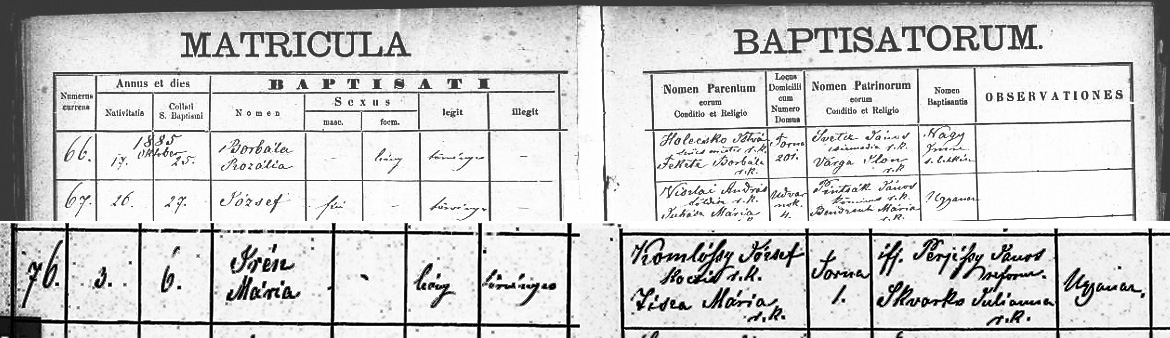 MATRICULA BAPTISATORUM.
Numerus currens
Annus et dies
Nativitatis
Collati S. Baptismi
BAPTISATI
Nomen
Sexus
masc.
foem.
legit
illegit
Nomen Parentum
eorum
Conditio et Religio
Locus
Domicilii
cum
Numero
Domus
Nomen Patrinorum
eorum
Conditio et Religio
Nomen
Baptisantis
OBSERVATIONES
1885
66.
17.
Oktober
25.
Borbála
Rozália
-
leány
törvényes
-
Holecsko István
r.k.
Fekete Borbála
r.k.
Torna
201.
Svetz János
r.k.
Varga Ilon
r.k.
Nagy
67.
26.
27.
József
fiú
-
törvénye
-
András
r.k.
Juhász Mária
Udvar
nok
4.
János
r.k.
Mária
r.k.
Ugyanaz
76.
3.
6.
Irén
Mária
-
leány
törvényes
Komlóssy József
Kocsis r.k.
Zisea Mária
r.k.
Torna
1.
iff. Perjéssy János
reform.
Skvarko Julianna
r.k.
Ugyanaz.